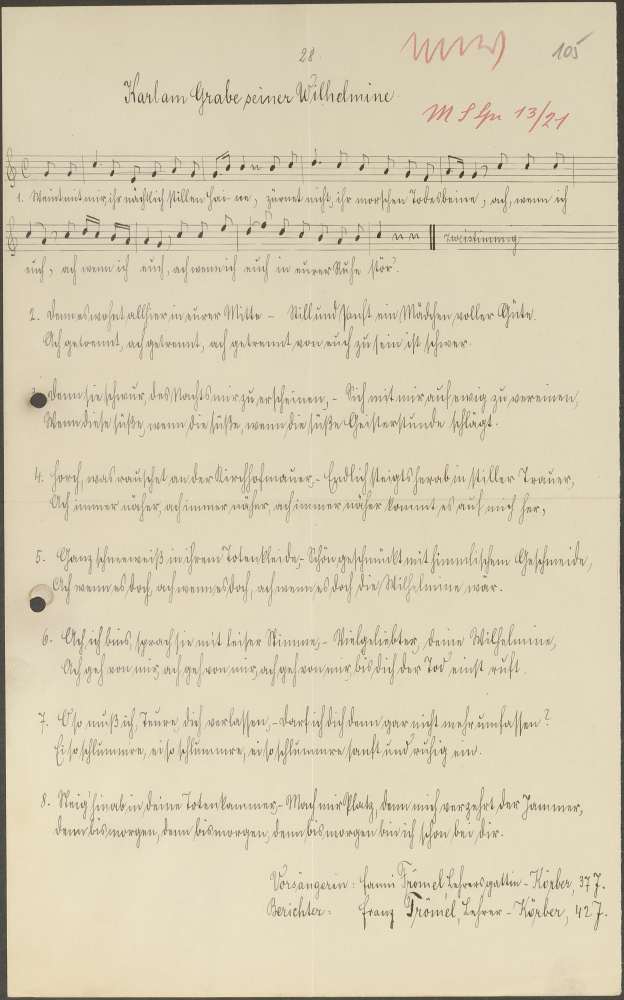 28.
105
Karl am Grabe seiner Wilhelmine
M S Gr 13/21
1. Weint mit mir, ihr nächtlich stillen Hai- ne, zürnet nicht, ihr morschen Todesbeine, ach, wenn ich
euch, ach wenn ich euch, ach wenn ich euch in eurer Ruhe stör'.
zweistimmig
2. Denn es wohnt allhier in eurer Mitte - Still und sanft ein Mädchen voller Güte.
Ach getrennt, ach getrennt, ach getrennt von euch zu sein ist schwer.
3. Denn sie schwur, des Nachts mir zu erscheinen, - Sich mit mir auf ewig zu vereinen,
Wenn diese süße, wenn die süße, wenn die süße Geisterstunde schlägt.
4. Horch, was rauschet an der Kirchhofmauer, - Endlich steigts herab in stiller Trauer,
Ach immer näher, ach immer näher, ach immer näher kommt es auf mich her,
5. Ganz schneeweiß in ihrem Totenkleide, - Schön geschmückt mit himmlischem Geschmeide,
Ach wenn es doch, ach wenn es doch, ach wenn es doch die Wilhelmine wär.
6. Ach, ich bins, sprach sie mit leiser Stimme, - Vielgeliebter, deine Wilhelmine,
Ach geh von mir, ach geh von mir, ach geh von mir, bis dich der Tod einst ruft.
7. O so muß ich, Teure, dich verlassen, - Darf ich dich denn gar nicht mehr umfassen?
Ei so schlummre, ei so schlummre, ei so schlummre sanft und ruhig ein.
8. Steig' hinab in deine Totenkammer, - Mach mir Platz, denn mich verzehrt der Jammer,
denn bis morgen, denn bis morgen, denn bis morgen bin ich schon bei dir.
Vorsängerin: Fanni Trömel Lehrersgattin - Körber, 37 J.
Berichter: Franz Trömel, Lehrer - Körber, 42 J.